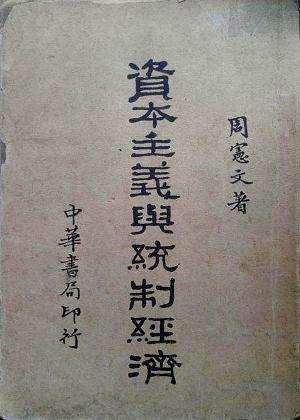 周憲文著
資本主義與統制經濟
中華書局印行